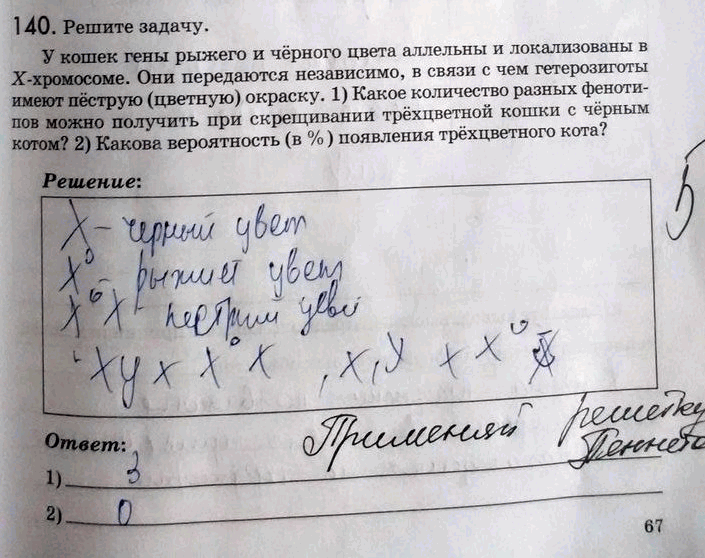 140. Решите задачу.
У кошек гены рыжего и чёрного цвета аллельны и локализованы в
X-хромосоме. Они передаются независимо, в связи с чем гетерозиготы
имеют пёструю (цветную) окраску. 1) Какое количество разных феноти-
пов можно получить при скрещивании трёхцветной кошки с чёрным
котом? 2) Какова вероятность (в %) появления трёхцветного кота?
Решение:
5
X – черный цвет
X⁰ – рыжий цвет
X⁰ X – цвет
Xy x X⁰ X
Ответ:
Применяй решетку
Пеннета
1) 3
2) 0
67